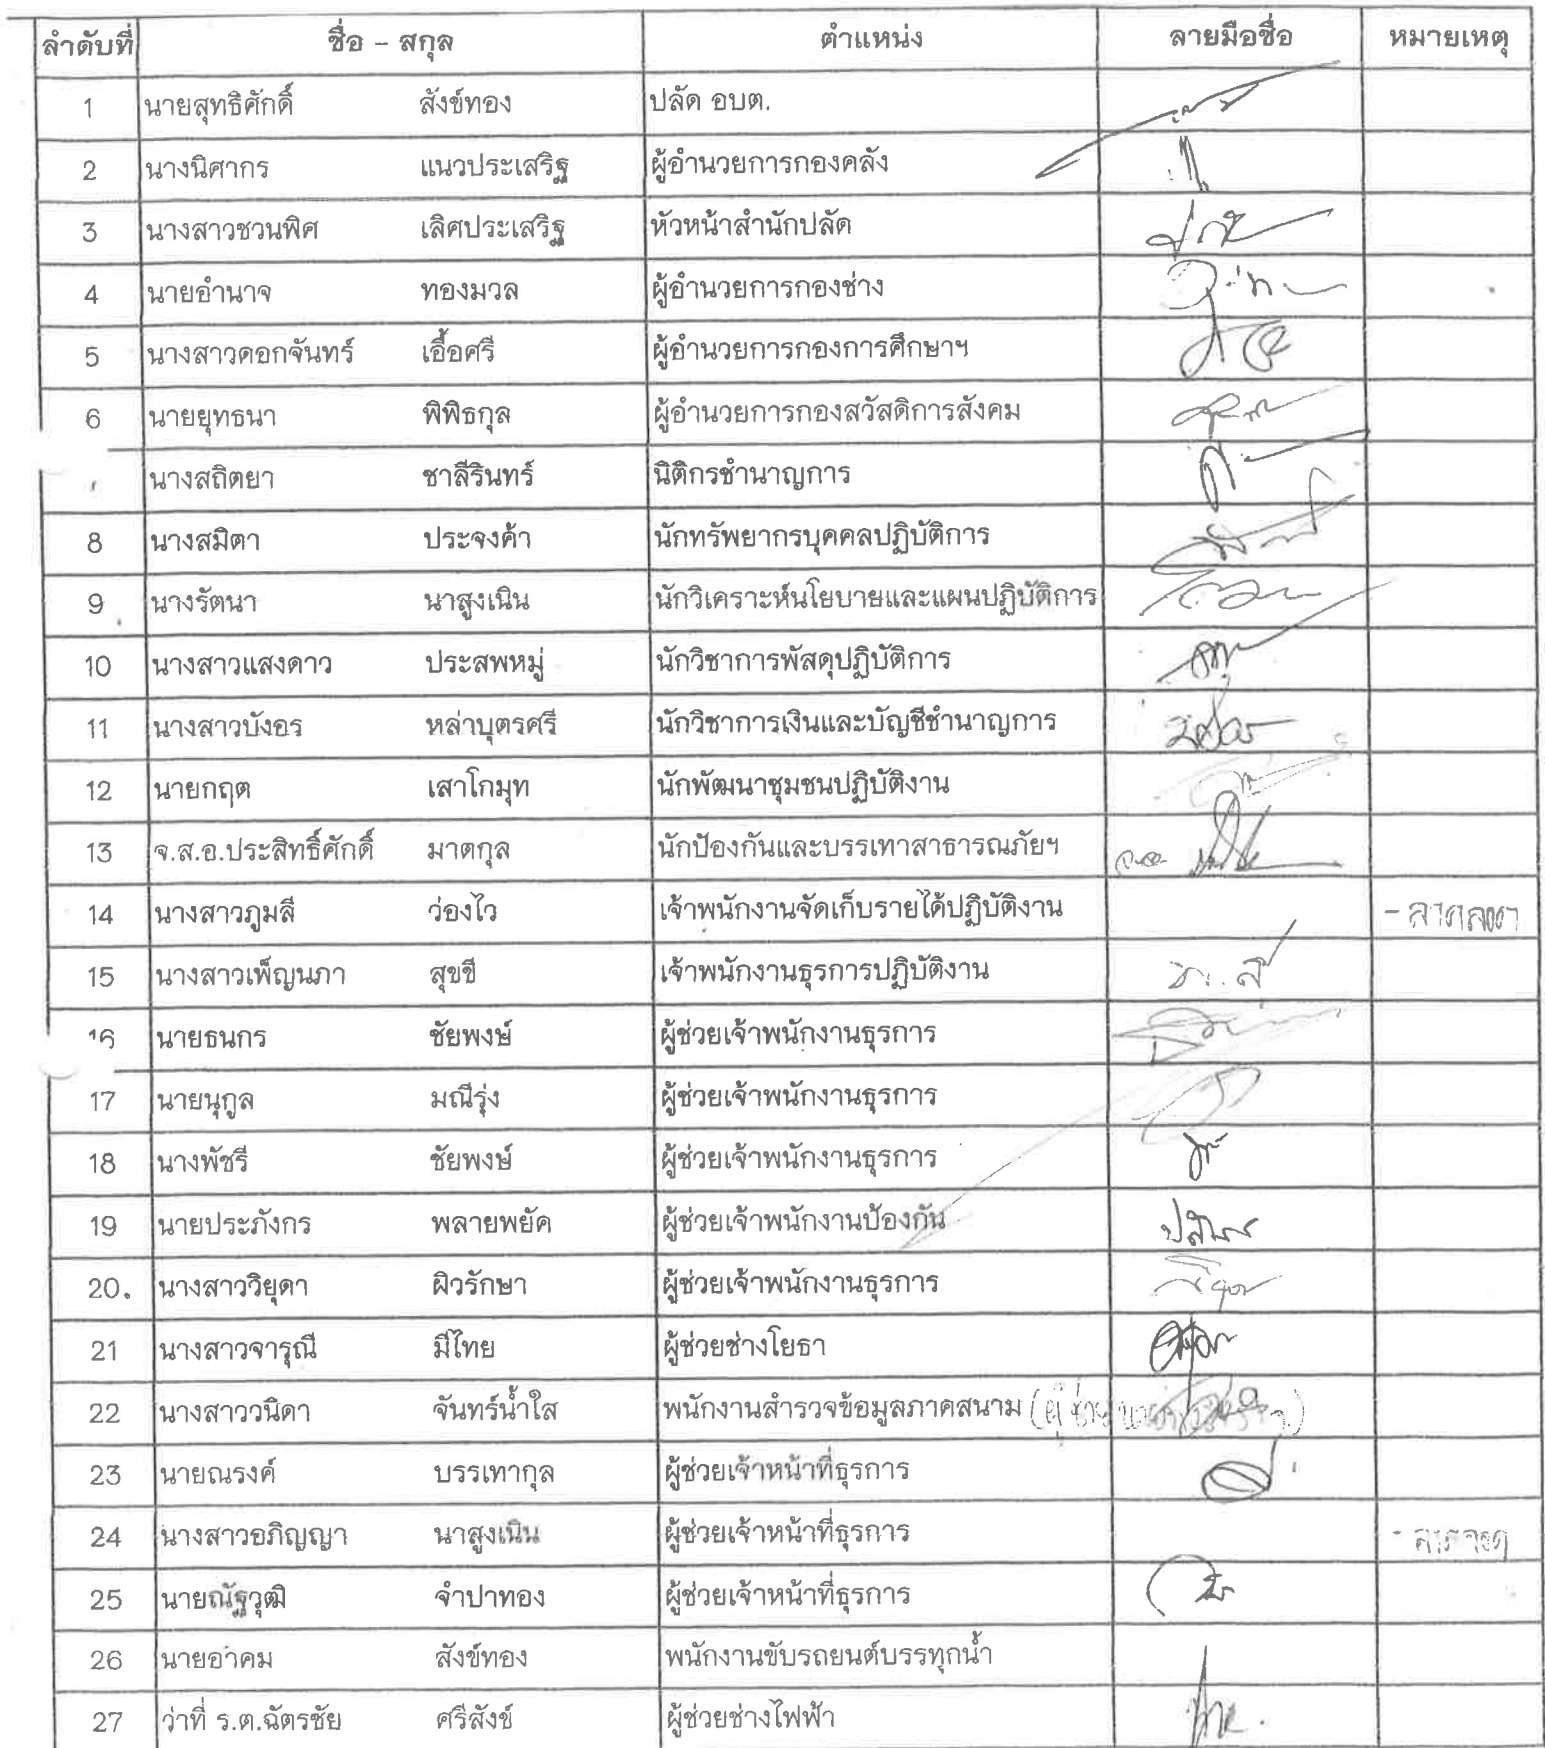 ลำดับที่ ชื่อ - สกุล ตำแหน่ง ลายมือชื่อ หมายเหตุ
1 นายสุทธิศักดิ์ สังข์ทอง ปลัด อบต.
2 นางนิศากร แนวประเสริฐ ผู้อำนวยการกองคลัง
3 นางสาวชวนพิศ เลิศประเสริฐ หัวหน้าสำนักปลัด
4 นายอำนาจ ทองมวล ผู้อำนวยการกองช่าง
5 นางสาวดอกจันทร์ เอื้อศรี ผู้อำนวยการกองการศึกษาฯ
6 นายยุทธนา พิพิธกุล ผู้อำนวยการกองสวัสดิการสังคม
นางสถิตยา ชาลีรินทร์ นิติกรชำนาญการ
8 นางสมิตา ประจงค้า นักทรัพยากรบุคคลปฏิบัติการ
9 นางรัตนา นาสูงเนิน นักวิเคราะห์นโยบายและแผนปฏิบัติการ
10 นางสาวแสงดาว ประสพหมู่ นักวิชาการพัสดุปฏิบัติการ
11 นางสาวบังอร หล่าบุตรศรี นักวิชาการเงินและบัญชีชำนาญการ
12 นายกฤต เสาโกมุท นักพัฒนาชุมชนปฏิบัติงาน
13 จ.ส.อ.ประสิทธิ์ศักดิ์ มาตกุล นักป้องกันและบรรเทาสาธารณภัยฯ
14 นางสาวภูมลี ว่องไว เจ้าพนักงานจัดเก็บรายได้ปฏิบัติงาน
15 นางสาวเพ็ญนภา สุขขี เจ้าพนักงานธุรการปฏิบัติงาน
16 นายธนกร ชัยพงษ์ ผู้ช่วยเจ้าพนักงานธุรการ
17 นายนุกูล มณีรุ่ง ผู้ช่วยเจ้าพนักงานธุรการ
18 นางพัชรี ชัยพงษ์ ผู้ช่วยเจ้าพนักงานธุรการ
19 นายประภังกร พลายพยัค ผู้ช่วยเจ้าพนักงานป้องกัน
20. นางสาววิยุดา ผิวรักษา ผู้ช่วยเจ้าพนักงานธุรการ
21 นางสาวจารุณี มีไทย ผู้ช่วยช่างโยธา
22 นางสาววนิดา จันทร์น้ำใส พนักงานสำรวจข้อมูลภาคสนาม
23 นายณรงค์ บรรเทากุล ผู้ช่วยเจ้าหน้าที่ธุรการ
24 นางสาวอภิญญา นาสูงเนิน ผู้ช่วยเจ้าหน้าที่ธุรการ
25 นายณัฐวุฒิ จำปาทอง ผู้ช่วยเจ้าหน้าที่ธุรการ
26 นายอาคม สังข์ทอง พนักงานขับรถยนต์บรรทุกน้ำ
27 ว่าที่ ร.ต.ฉัตรชัย ศรีสังข์ ผู้ช่วยช่างไฟฟ้า